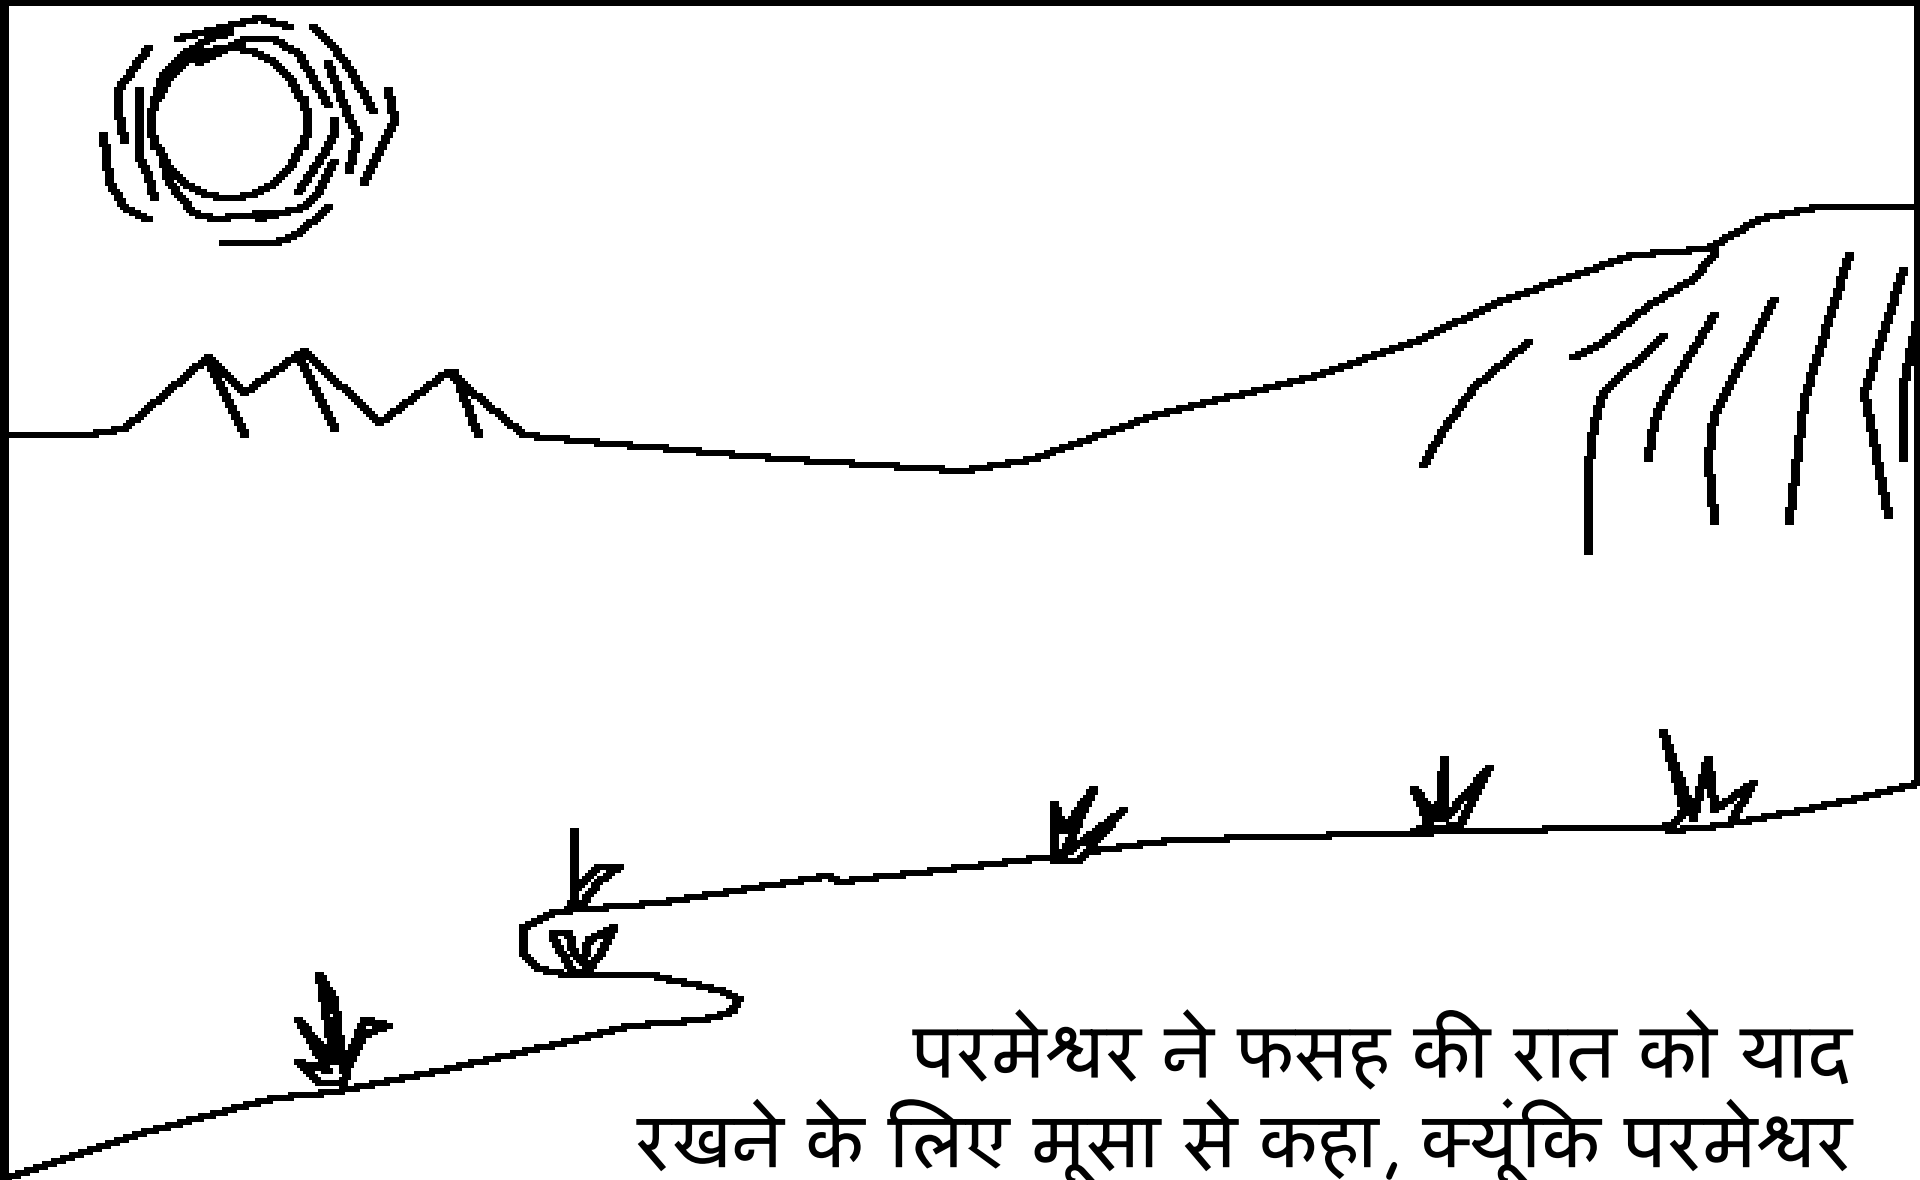 परमेश्वर ने फसह की रात को याद
रखने के लिए मूसा से कहा, क्यूंकि परमेश्वर